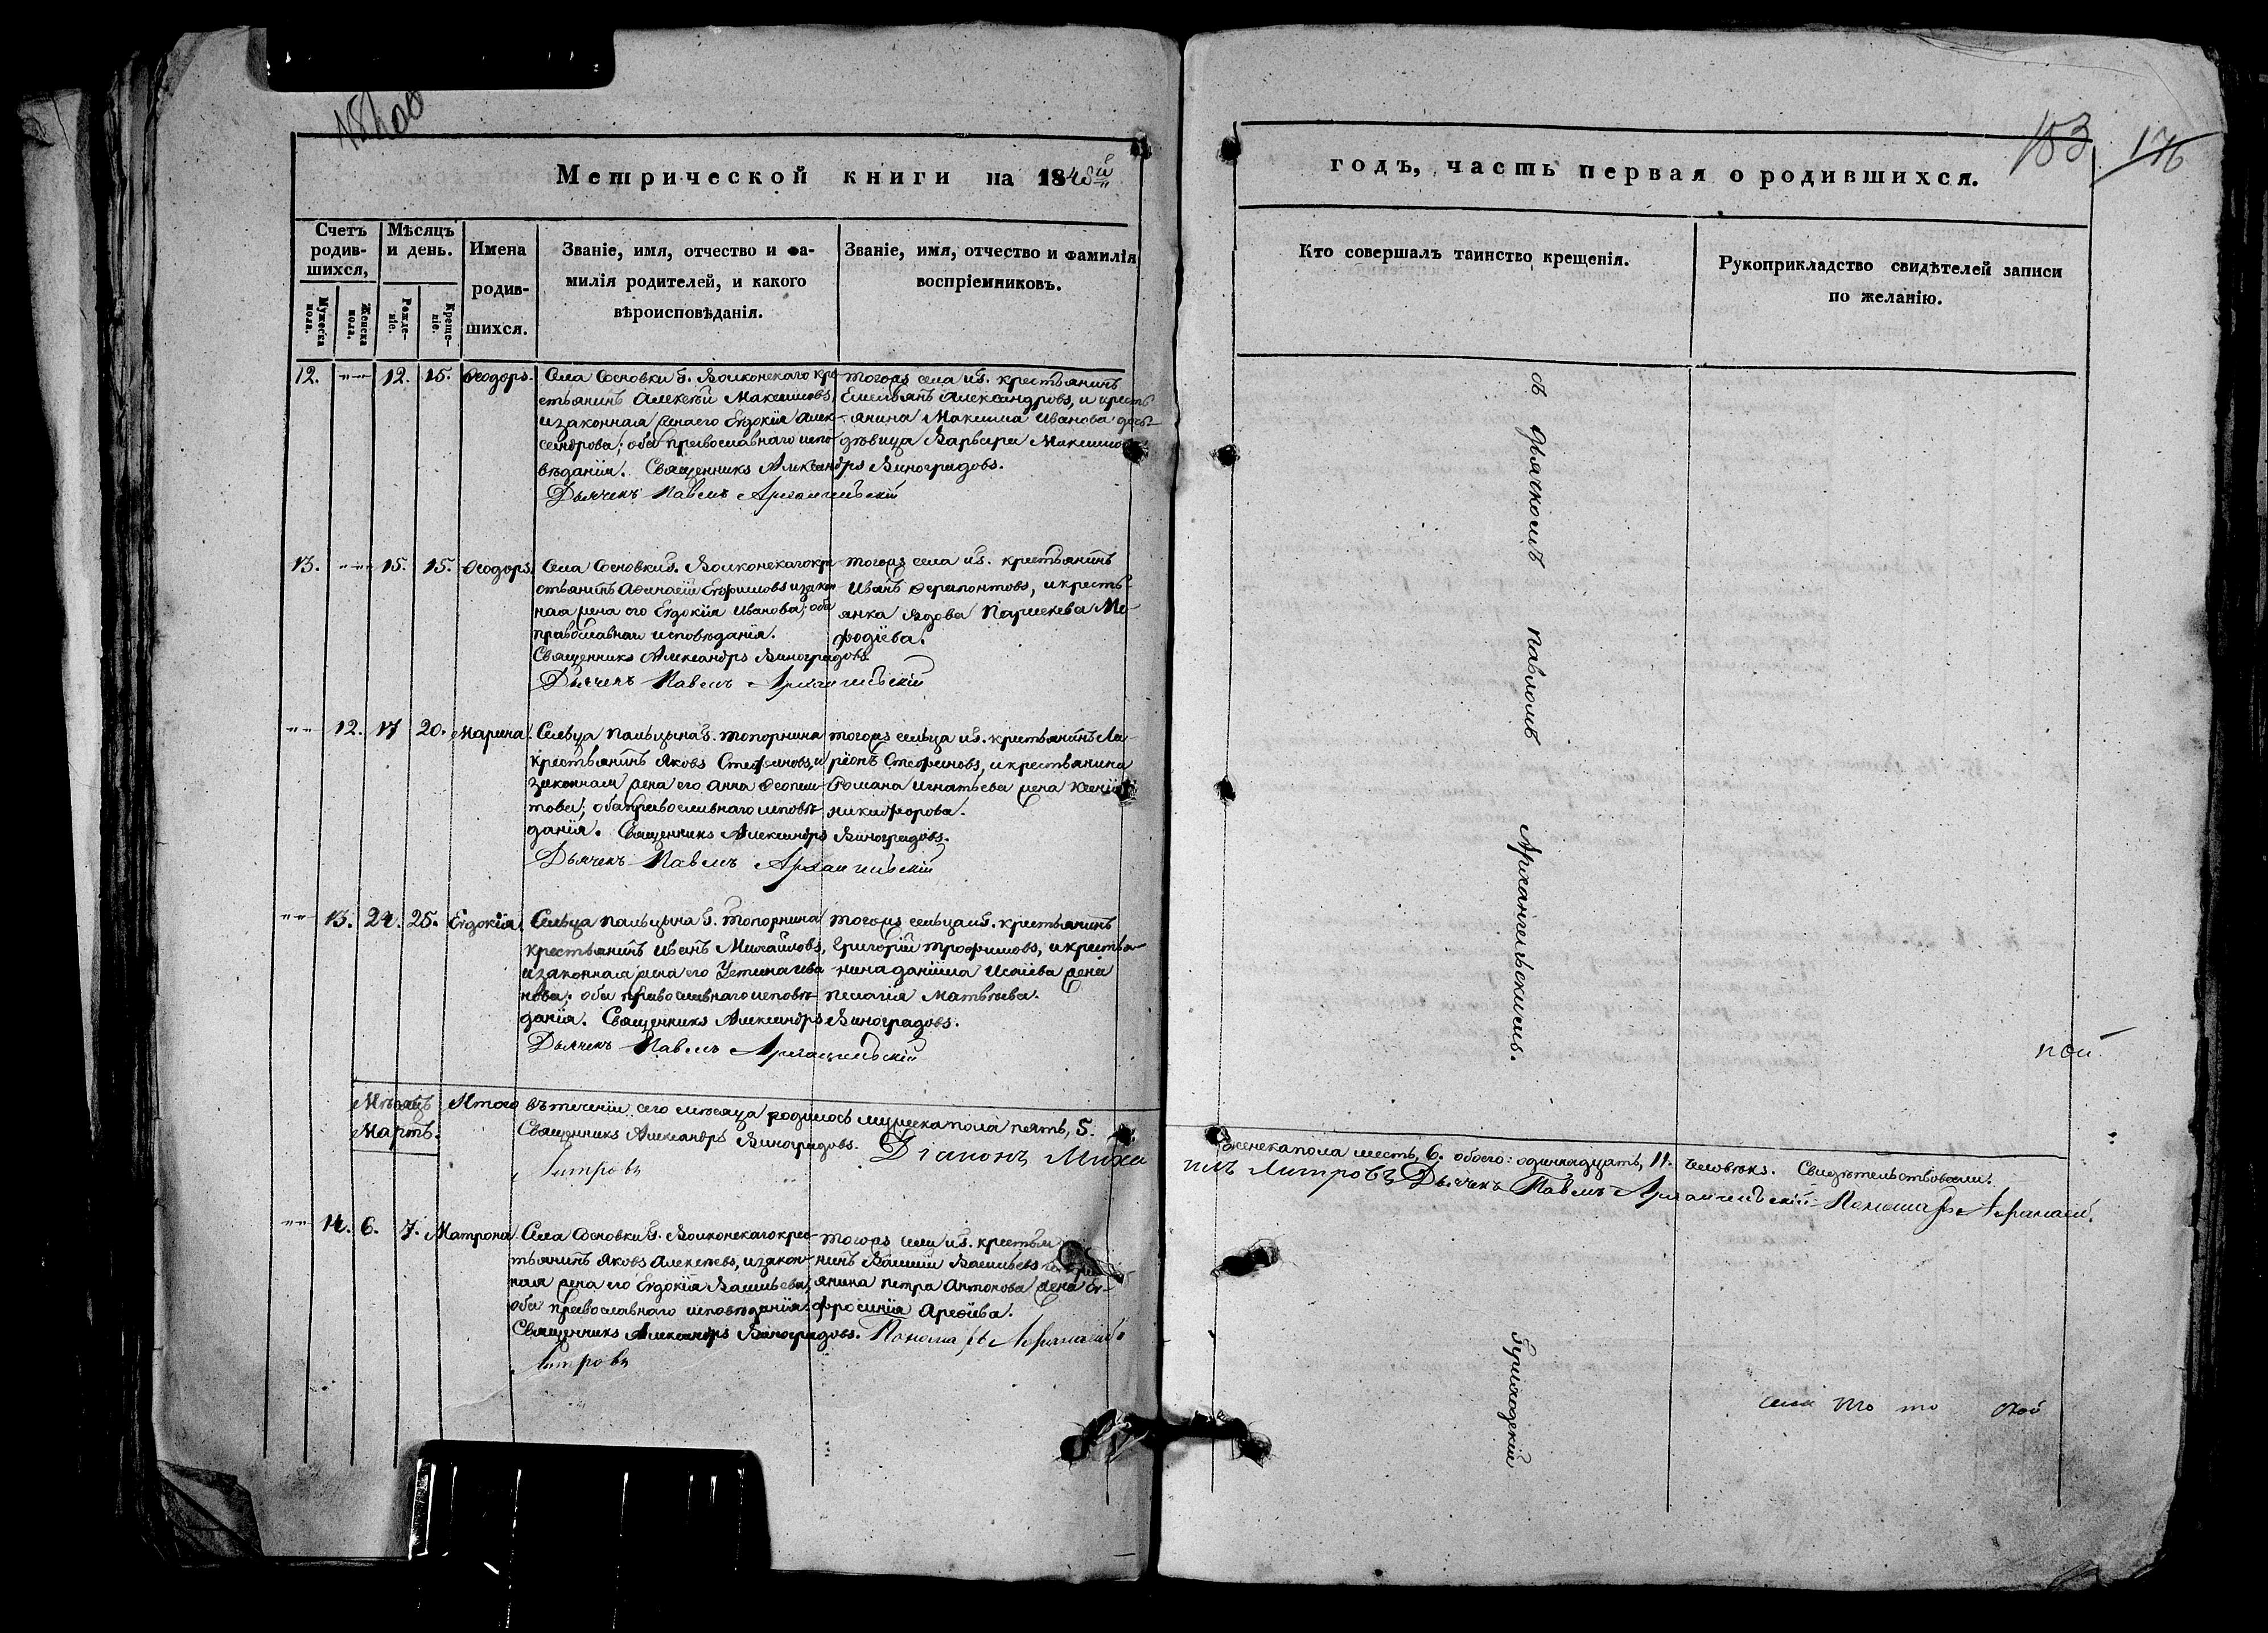 Метрической книги на 1848й
годъ, часть первая о родившихся.
153 176
Счетъ родив-шихся,
Мужеска пола.
Женска пола.
Мѣсяцъ и день.
Рожде-ніе.
Креще-ніе.
Имена родив-шихся.
Званіе, имя, отчество и фа-
милія родителей, и какого
вѣроисповѣданія.
Званіе, имя, отчество и фамилія
воспріемниковъ.
Кто совершалъ таинство крещенія.
Рукоприкладство свидѣтелей записи
по желанію.
12. 12. 15. Ѳеодоръ.
Села Сосновки Г. Волконскаго кре-
стьянинъ Алексѣй Максимовъ,
и законная жена его Евдокія Алек-
сандрова; оба православнаго испо-
вѣданія. Священникъ Александръ Виноградовъ.
Дьячекъ Павелъ Архангельскій
тогожъ села и Г. крестьянинъ
Емельянъ Александровъ, и кресть-
янина Максима Иванова дочь
дѣвица Варвара Максимова
13. 15. 15. Ѳеодоръ.
Села Сосновки Г. Волконскаго кре
стьянинъ Аѳанасій Ефимовъ и закон
ная жена его Евдокія Иванова; оба
православнаго исповѣданія.
Священникъ Александръ Виноградовъ
Дьячекъ Павелъ Архангельскій
тогожъ села и Г. крестьянинъ
Иванъ Ферапонтовъ, и кресть-
янка вдова Параскева Ме-
фодіева.
12. 17 20. Марина.
Сельца Пальцына Г. Топорнина
крестьянинъ Яковъ Стефановъ, и
законная жена его Анна Ѳеопем-
това; оба православнаго исповѣ-
данія. Священникъ Александръ Виноградовъ.
Дьячекъ Павелъ Архангельскій
тогожъ сельца и Г. крестьянинъ Ла-
ріонъ Стефановъ, и крестьянина
Романа Игнатьева жена Ксенія
Никифорова.
13. 24. 25. Евдокія.
Сельца Пальцына Г. Топорнина
крестьянинъ Иванъ Михайловъ,
и законная жена его Устинья Ива
нова; оба православнаго исповѣ-
данія. Священникъ Александръ Виноградовъ.
Дьячекъ Павелъ Архангельскій
тогожъ сельца и Г. крестьянинъ
Григорій Трофимовъ, и крестья-
нина Даніила Исаіева жена
Пелагія Матвѣева.
Итого въ теченіи сего мѣсяца родилось мужеска пола пять, 5.
женска пола шесть, 6. обоего: одиннадцать, 11. человѣкъ. Свидѣтельствовали:
Священникъ Александръ Виноградовъ. Діаконъ Миха
илъ Дьячекъ Павелъ Архангельскій Пономарь
Мѣсяцъ
Мартъ.
14. 6. 7. Матрона
Села Сосновки Г. Волконскаго крес-
тьянинъ Яковъ Алексѣевъ, и закон-
ная жена его Евдокія Васильева,
оба православнаго исповѣданія.
Священникъ Александръ Виноградовъ. Пономарь
тогожъ села и Г. крестья
нинъ Василій Васильевъ и крес
янина Петра Антонова жена Ев-
фросинія Арефіева.
ъ дьячкомъ Павломъ Архангельскимъ.